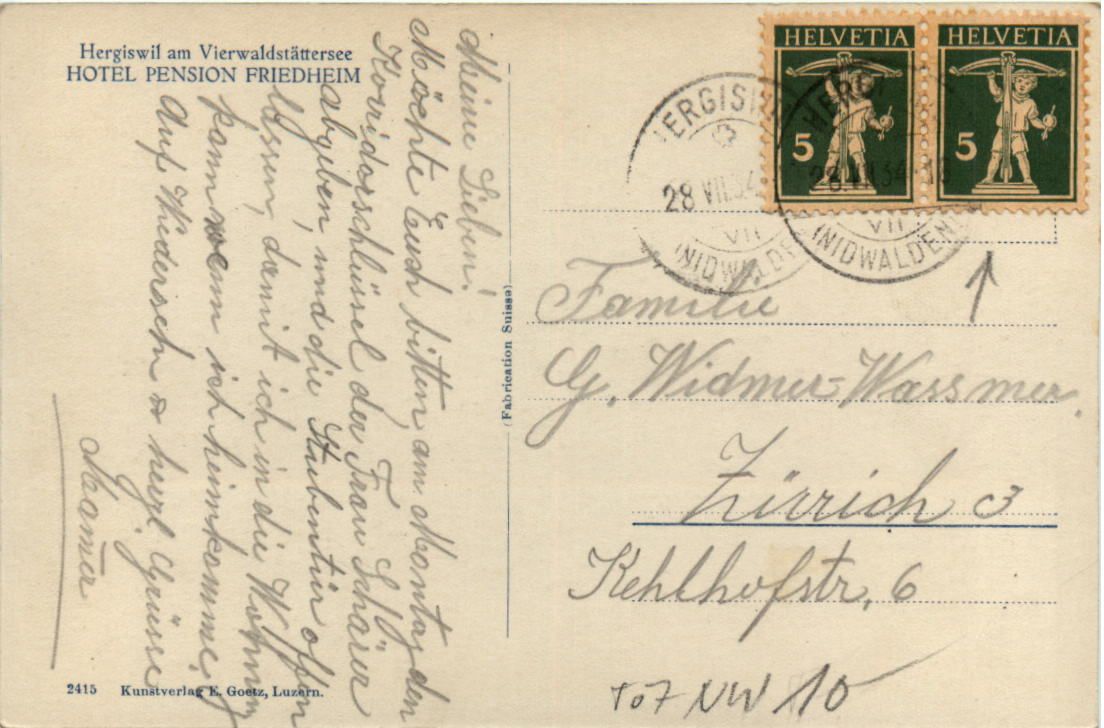 Hergiswil am Vierwaldstättersee
HOTEL PENSION FRIEDHEIM
Meine Lieben!
Möchte Euch bitten am Montag den
Korridorschlüssel der Frau Schärer
abgeben, und die Stubentür offen
lassen, damit ich in die Wohnung
kann wenn ich heimkomme,
Auf Wiedersehn & herzl. Grüsse
Mama
2415 Kunstverlag E. Goetz, Luzern.
(Fabrication Suisse)
HELVETIA
5
HELVETIA
5
HERGISWIL
28.VII.34
VII
(NIDWALDEN)
HERGI
28.VII.34
VII
(NIDWALDEN)
Familie
G. Widmer-Wassmer,
Zürich 3
Kehlhofstr, 6
NW 10